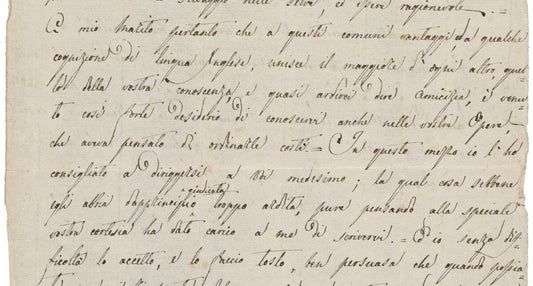 selvaggio nelle selve, ed esser ragionevole
È mio Marito pertanto che a questi comuni vantaggi, ed a qualche
cognizione di lingua Inglese, unisce il maggiore d'ogni altro, quel=
lo della vostra conoscenza, e quasi ardirei dire Amicizia, è venu=
to così forte desiderio di conoscervi anche nelle vostre Opere,
che aveva pensato di ordinarle costì. = In questo mezzo io l'ho
consigliato a diriggersi a Voi medesimo; la qual cosa sebbene
egli abbia dapprincipio giudicata troppo ardita, pure pensando alla speciale
vostra cortesia ha dato carico a me di scrivervi. = Ed io senza dif=
ficoltà lo accetto, e lo faccio tosto, ben persuasa che quando possia=